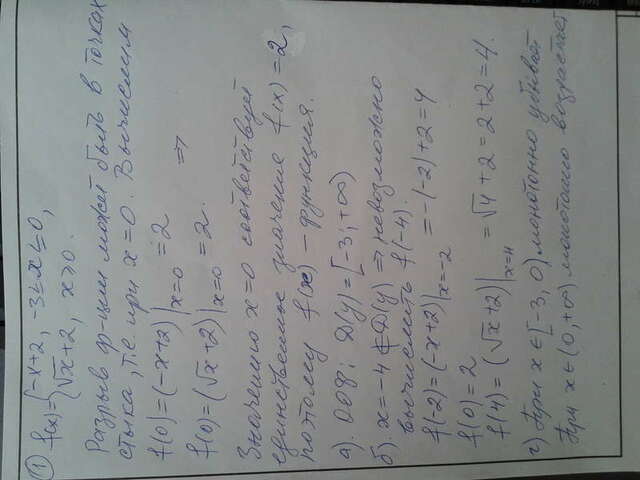 ① f(x)={-x+2, -3≤x≤0,
√x+2, x>0.
Разрыв ф-ции может быть в точках
стыка, т.е при x=0. Вычислим
f(0)=(-x+2)|x=0 =2
f(0)=(√x+2)|x=0 =2. ⇒
Значению x=0 соответствует
единственное значение f(x)=2,
поэтому f(x) – функция.
а). ООФ: D(y)=[-3;+∞)
б). x=-4 ∉ D(y) ⇒ невозможно
вычислить f(-4).
f(-2)=(-x+2)|x=-2 =-(-2)+2=4
f(0)=2
f(4)=(√x+2)|x=4 =√4+2=2+2=4.
г) При x∈[-3, 0) монотонно убывает
При x∈(0,+∞) монотонно возрастает